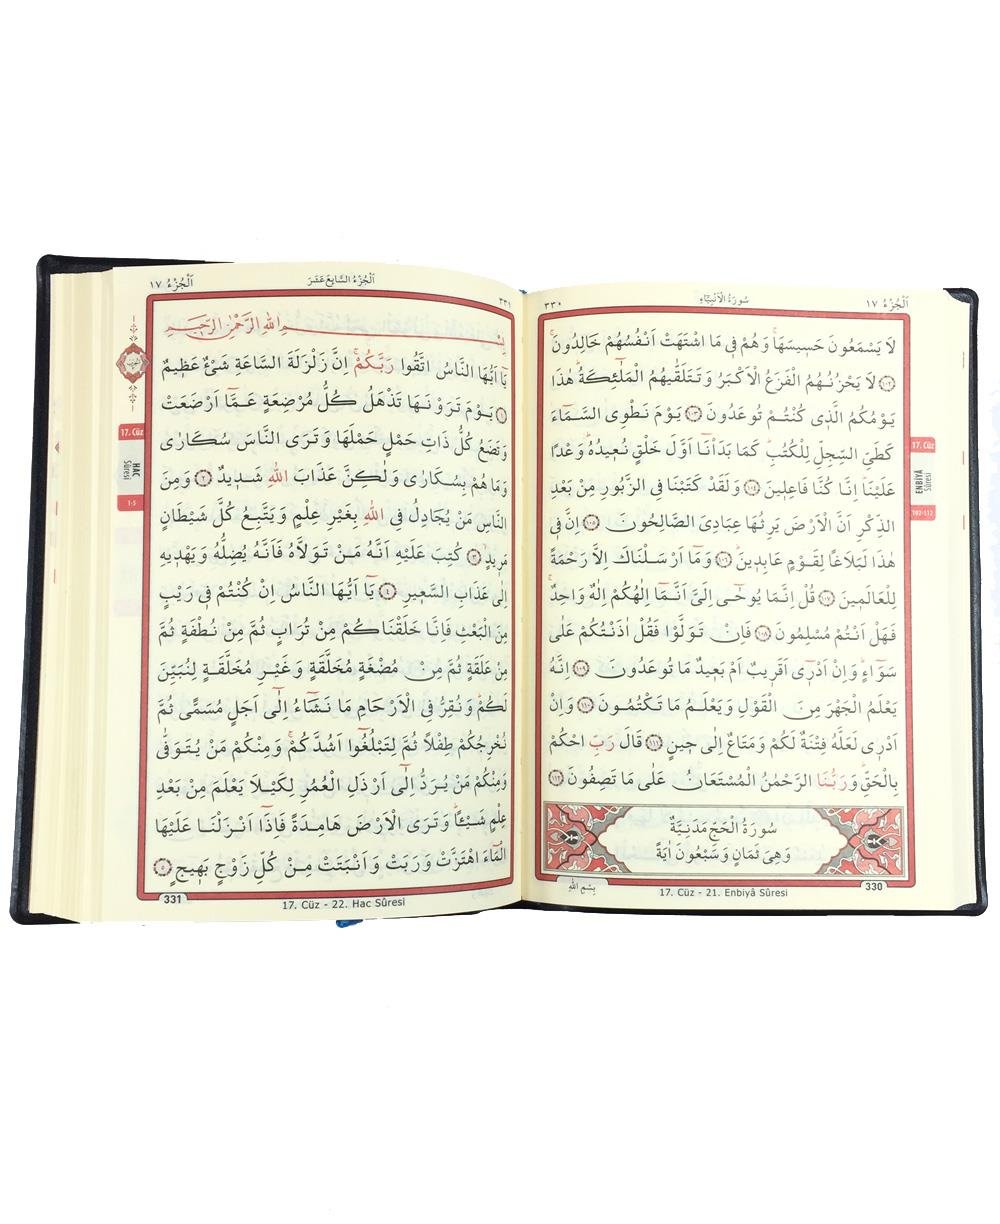 اَلْجُزْءُ ١٧
سُورَةُ الْاَنْبِيَاءِ
٣٣٠
لَا يَسْمَعُونَ حَسٖيسَهَاۚ وَهُمْ فٖي مَا اشْتَهَتْ اَنْفُسُهُمْ خَالِدُونَۚ
﴿١٠٢﴾ لَا يَحْزُنُهُمُ الْفَزَعُ الْاَكْبَرُ وَتَتَلَقّٰيهُمُ الْمَلٰٓئِكَةُؕ هٰذَا
يَوْمُكُمُ الَّذٖي كُنْتُمْ تُوعَدُونَ ﴿١٠٣﴾ يَوْمَ نَطْوِي السَّمَٓاءَ
كَطَيِّ السِّجِلِّ لِلْكُتُبِؕ كَمَا بَدَأْنَٓا اَوَّلَ خَلْقٍ نُعٖيدُهُؕ وَعْدًا
عَلَيْنَاؕ اِنَّا كُنَّا فَاعِلٖينَ ﴿١٠٤﴾ وَلَقَدْ كَتَبْنَا فِي الزَّبُورِ مِنْ بَعْدِ
الذِّكْرِ اَنَّ الْاَرْضَ يَرِثُهَا عِبَادِيَ الصَّالِحُونَ ﴿١٠٥﴾ اِنَّ فٖي
هٰذَا لَبَلَاغًا لِقَوْمٍ عَابِدٖينَؕ ﴿١٠٦﴾ وَمَٓا اَرْسَلْنَاكَ اِلَّا رَحْمَةً
لِلْعَالَمٖينَ ﴿١٠٧﴾ قُلْ اِنَّمَا يُوحٰٓى اِلَيَّ اَنَّمَٓا اِلٰهُكُمْ اِلٰهٌ وَاحِدٌۚ
فَهَلْ اَنْتُمْ مُسْلِمُونَ ﴿١٠٨﴾ فَاِنْ تَوَلَّوْا فَقُلْ اٰذَنْتُكُمْ عَلٰى
سَوَٓاءٍؕ وَاِنْ اَدْرٖٓي اَقَرٖيبٌ اَمْ بَعٖيدٌ مَا تُوعَدُونَ ﴿١٠٩﴾ اِنَّهُ
يَعْلَمُ الْجَهْرَ مِنَ الْقَوْلِ وَيَعْلَمُ مَا تَكْتُمُونَ ﴿١١٠﴾ وَاِنْ
اَدْرٖي لَعَلَّهُ فِتْنَةٌ لَكُمْ وَمَتَاعٌ اِلٰى حٖينٍ ﴿١١١﴾ قَالَ رَبِّ احْكُمْ
بِالْحَقِّؕ وَرَبُّنَا الرَّحْمٰنُ الْمُسْتَعَانُ عَلٰى مَا تَصِفُونَ ﴿١١٢﴾
سُورَةُ الْحَجِّ مَدَنِيَّةٌ
وَهِيَ ثَمَانٍ وَسَبْعُونَ اٰيَةً
330
17. Cüz - 21. Enbiyâ Sûresi
بِسْمِ اللّٰهِ
17. Cüz
ENBİYÂ
Sûresi
102-112
٣٣١
اَلْجُزْءُ السَّابِعَ عَشَرَ
اَلْجُزْءُ ١٧
بِسْمِ اللّٰهِ الرَّحْمٰنِ الرَّحٖيمِ
يَٓا اَيُّهَا النَّاسُ اتَّقُوا رَبَّكُمْۚ اِنَّ زَلْزَلَةَ السَّاعَةِ شَيْءٌ عَظٖيمٌ
﴿١﴾ يَوْمَ تَرَوْنَهَا تَذْهَلُ كُلُّ مُرْضِعَةٍ عَمَّٓا اَرْضَعَتْ
وَتَضَعُ كُلُّ ذَاتِ حَمْلٍ حَمْلَهَا وَتَرَى النَّاسَ سُكَارٰى
وَمَا هُمْ بِسُكَارٰى وَلٰكِنَّ عَذَابَ اللّٰهِ شَدٖيدٌ ﴿٢﴾ وَمِنَ
النَّاسِ مَنْ يُجَادِلُ فِي اللّٰهِ بِغَيْرِ عِلْمٍ وَيَتَّبِعُ كُلَّ شَيْطَانٍ
مَرٖيدٍۙ ﴿٣﴾ كُتِبَ عَلَيْهِ اَنَّهُ مَنْ تَوَلَّاهُ فَاَنَّهُ يُضِلُّهُ وَيَهْدٖيهِ
اِلٰى عَذَابِ السَّعٖيرِ ﴿٤﴾ يَٓا اَيُّهَا النَّاسُ اِنْ كُنْتُمْ فٖي رَيْبٍ
مِنَ الْبَعْثِ فَاِنَّا خَلَقْنَاكُمْ مِنْ تُرَابٍ ثُمَّ مِنْ نُطْفَةٍ ثُمَّ
مِنْ عَلَقَةٍ ثُمَّ مِنْ مُضْغَةٍ مُخَلَّقَةٍ وَغَيْرِ مُخَلَّقَةٍ لِنُبَيِّنَ
لَكُمْؕ وَنُقِرُّ فِي الْاَرْحَامِ مَا نَشَٓاءُ اِلٰٓى اَجَلٍ مُسَمًّى ثُمَّ
نُخْرِجُكُمْ طِفْلًا ثُمَّ لِتَبْلُغُٓوا اَشُدَّكُمْۚ وَمِنْكُمْ مَنْ يُتَوَفّٰى
وَمِنْكُمْ مَنْ يُرَدُّ اِلٰٓى اَرْذَلِ الْعُمُرِ لِكَيْلَا يَعْلَمَ مِنْ بَعْدِ
عِلْمٍ شَيْـًٔاؕ وَتَرَى الْاَرْضَ هَامِدَةً فَاِذَٓا اَنْزَلْنَا عَلَيْهَا
الْمَٓاءَ اهْتَزَّتْ وَرَبَتْ وَاَنْبَتَتْ مِنْ كُلِّ زَوْجٍ بَهٖيجٍ ﴿٥﴾
331
17. Cüz - 22. Hac Sûresi
17. Cüz
HAC
Sûresi
1-5